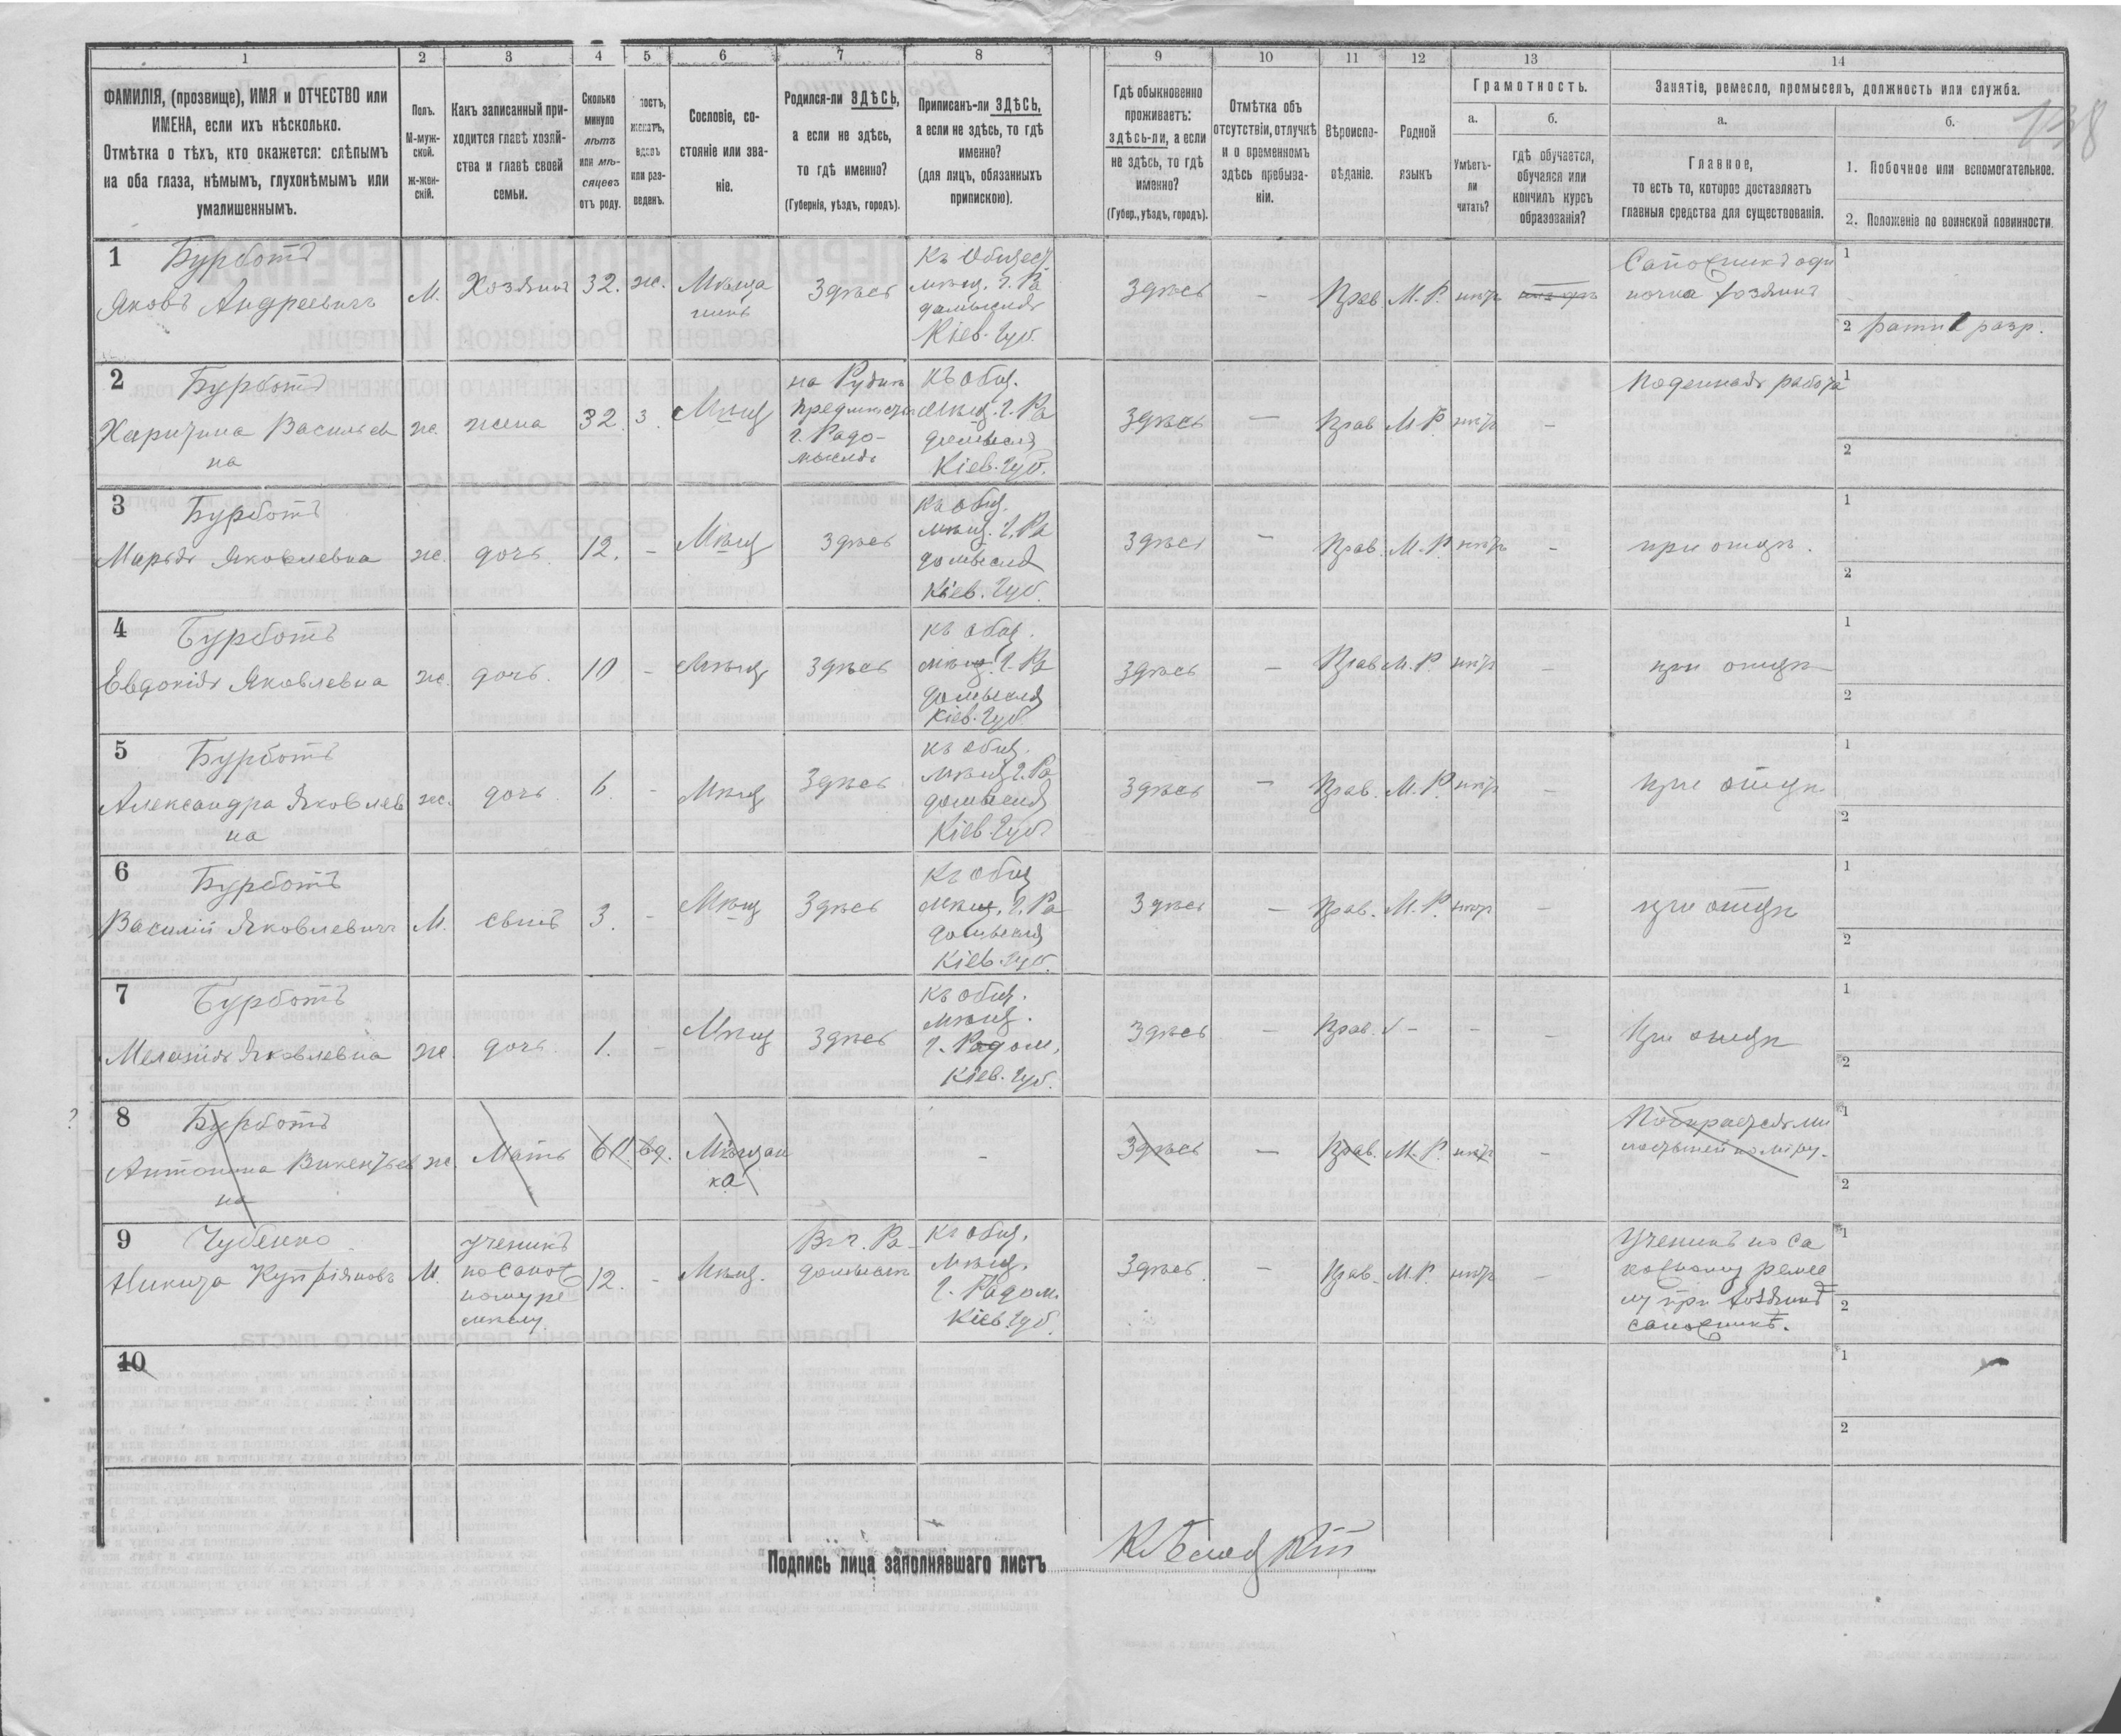 138
1 2 3 4 5 6 7 8 9 10 11 12 13 14
ФАМИЛІЯ, (прозвище), ИМЯ и ОТЧЕСТВО или
ИМЕНА, если ихъ нѣсколько.
Отмѣтка о тѣхъ, кто окажется: слѣпымъ
на оба глаза, нѣмымъ, глухонѣмымъ или
умалишеннымъ.
Полъ.
М-муж-
ской.
ж-жен-
скій.
Какъ записанный при-
ходится главѣ хозяй-
ства и главѣ своей
семьи.
Сколько
минуло
лѣтъ
или мѣ-
сяцевъ
отъ роду.
тостъ,
женатъ,
вдовъ
или раз-
веденъ.
Сословіе, со-
стояніе или зва-
ніе.
Родился-ли ЗДѢСЬ,
а если не здѣсь,
то гдѣ именно?
(Губернія, уѣздъ, городъ).
Приписанъ-ли ЗДѢСЬ,
а если не здѣсь, то гдѣ
именно?
(для лицъ, обязанныхъ
припискою).
Гдѣ обыкновенно
проживаетъ:
здѣсь-ли, а если
не здѣсь, то гдѣ
именно?
(Губер., уѣздъ, городъ).
Отмѣтка объ
отсутствіи, отлучкѣ
и о временномъ
здѣсь пребыва-
ніи.
Вѣроиспо-
вѣданіе.
Родной
языкъ
Грамотность.
а.
Умѣетъ-
ли
читать?
б.
гдѣ обучается,
обучался или
кончилъ курсъ
образованія?
Занятіе, ремесло, промыселъ, должность или служба.
а.
Главное,
то есть то, которое доставляетъ
главныя средства для существованія.
б.
1. Побочное или вспомогательное.
2. Положеніе по воинской повинности.
1 Бурботъ
Яковъ Андреевичъ
М.
Хозяинъ
32.
ж.
Мѣща
нинъ
Здѣсь
Къ Общест
мѣщ. г. Ра
домысля
Кіев. Губ.
Здѣсь
–
Прав
М. Р.
нѣтъ
Сапожникъ оди
ночка хозяинъ
1
2 ратн 1 разр.
2 Бурботъ
Харитина Васильев
на
ж.
жена
32
з.
Мѣщ
на Рудни
предмѣстьи
г. Радо-
мысля
Къ общ.
мѣщ. г. Ра
домысля
Кіев. Губ.
Здѣсь
–
Прав
М. Р.
нѣтъ
–
Поденная работа
1
2
3 Бурботъ
Марья Яковлевна
ж.
дочь
12.
–
Мѣщ
Здѣсь
Къ общ.
мѣщ. г. Ра
домысля
Кіев. Губ.
Здѣсь
–
Прав.
М. Р.
нѣтъ
–
при отцѣ.
1
2
4 Бурботъ
Евдокія Яковлевна
ж.
дочь.
10
–
Мѣщ
Здѣсь
къ общ.
мѣщ. г. Ра
домысля
Кіев. Губ.
Здѣсь
–
Прав
М. Р.
нѣтъ
–
при отцѣ
1
2
5 Бурботъ
Александра Яковлев
на
ж.
дочь
6.
–
Мѣщ
Здѣсь
къ общ.
мѣщ г. Ра
домысля
Кіев. Губ.
Здѣсь
–
Прав.
М. Р.
нѣтъ
–
при отцѣ
1
2
6 Бурботъ
Василій Яковлевичъ
М.
сынъ
3.
–
Мѣщ
Здѣсь
Къ общ
мѣщ. г. Ра
домысля
Кіев. Губ.
Здѣсь
–
Прав.
М. Р.
нѣтъ
–
при отцѣ
1
2
7 Бурботъ
Меланія Яковлевна
ж.
дочь
1.
–
Мѣщ
Здѣсь
къ общ.
мѣщ.
г. Радом.
Кіев. Губ.
Здѣсь
–
Прав.
–
–
–
При отцѣ
1
2
? 8 Бурботъ
Антонина Викентьев
на
ж.
Мать
60.
вд.
Мѣщан
ка
–
Здѣсь
–
Прав.
М. Р.
нѣтъ
Побирается ми
лостыней по міру.
1
2
9 Чубенко
Никита Купріяновъ
М.
ученикъ
по сапож
ному ре
меслу
12.
–
Мѣщ.
Въ г. Ра
домыслѣ
къ общ.
мѣщ.
г. Радом.
Кіев. Губ.
Здѣсь.
–
Прав.
М. Р.
нѣтъ
–
Ученикъ по са
пожному ремес
лу при хозяинѣ
сапожникѣ.
1
2
10
1
2
Подпись лица заполнявшаго листъ